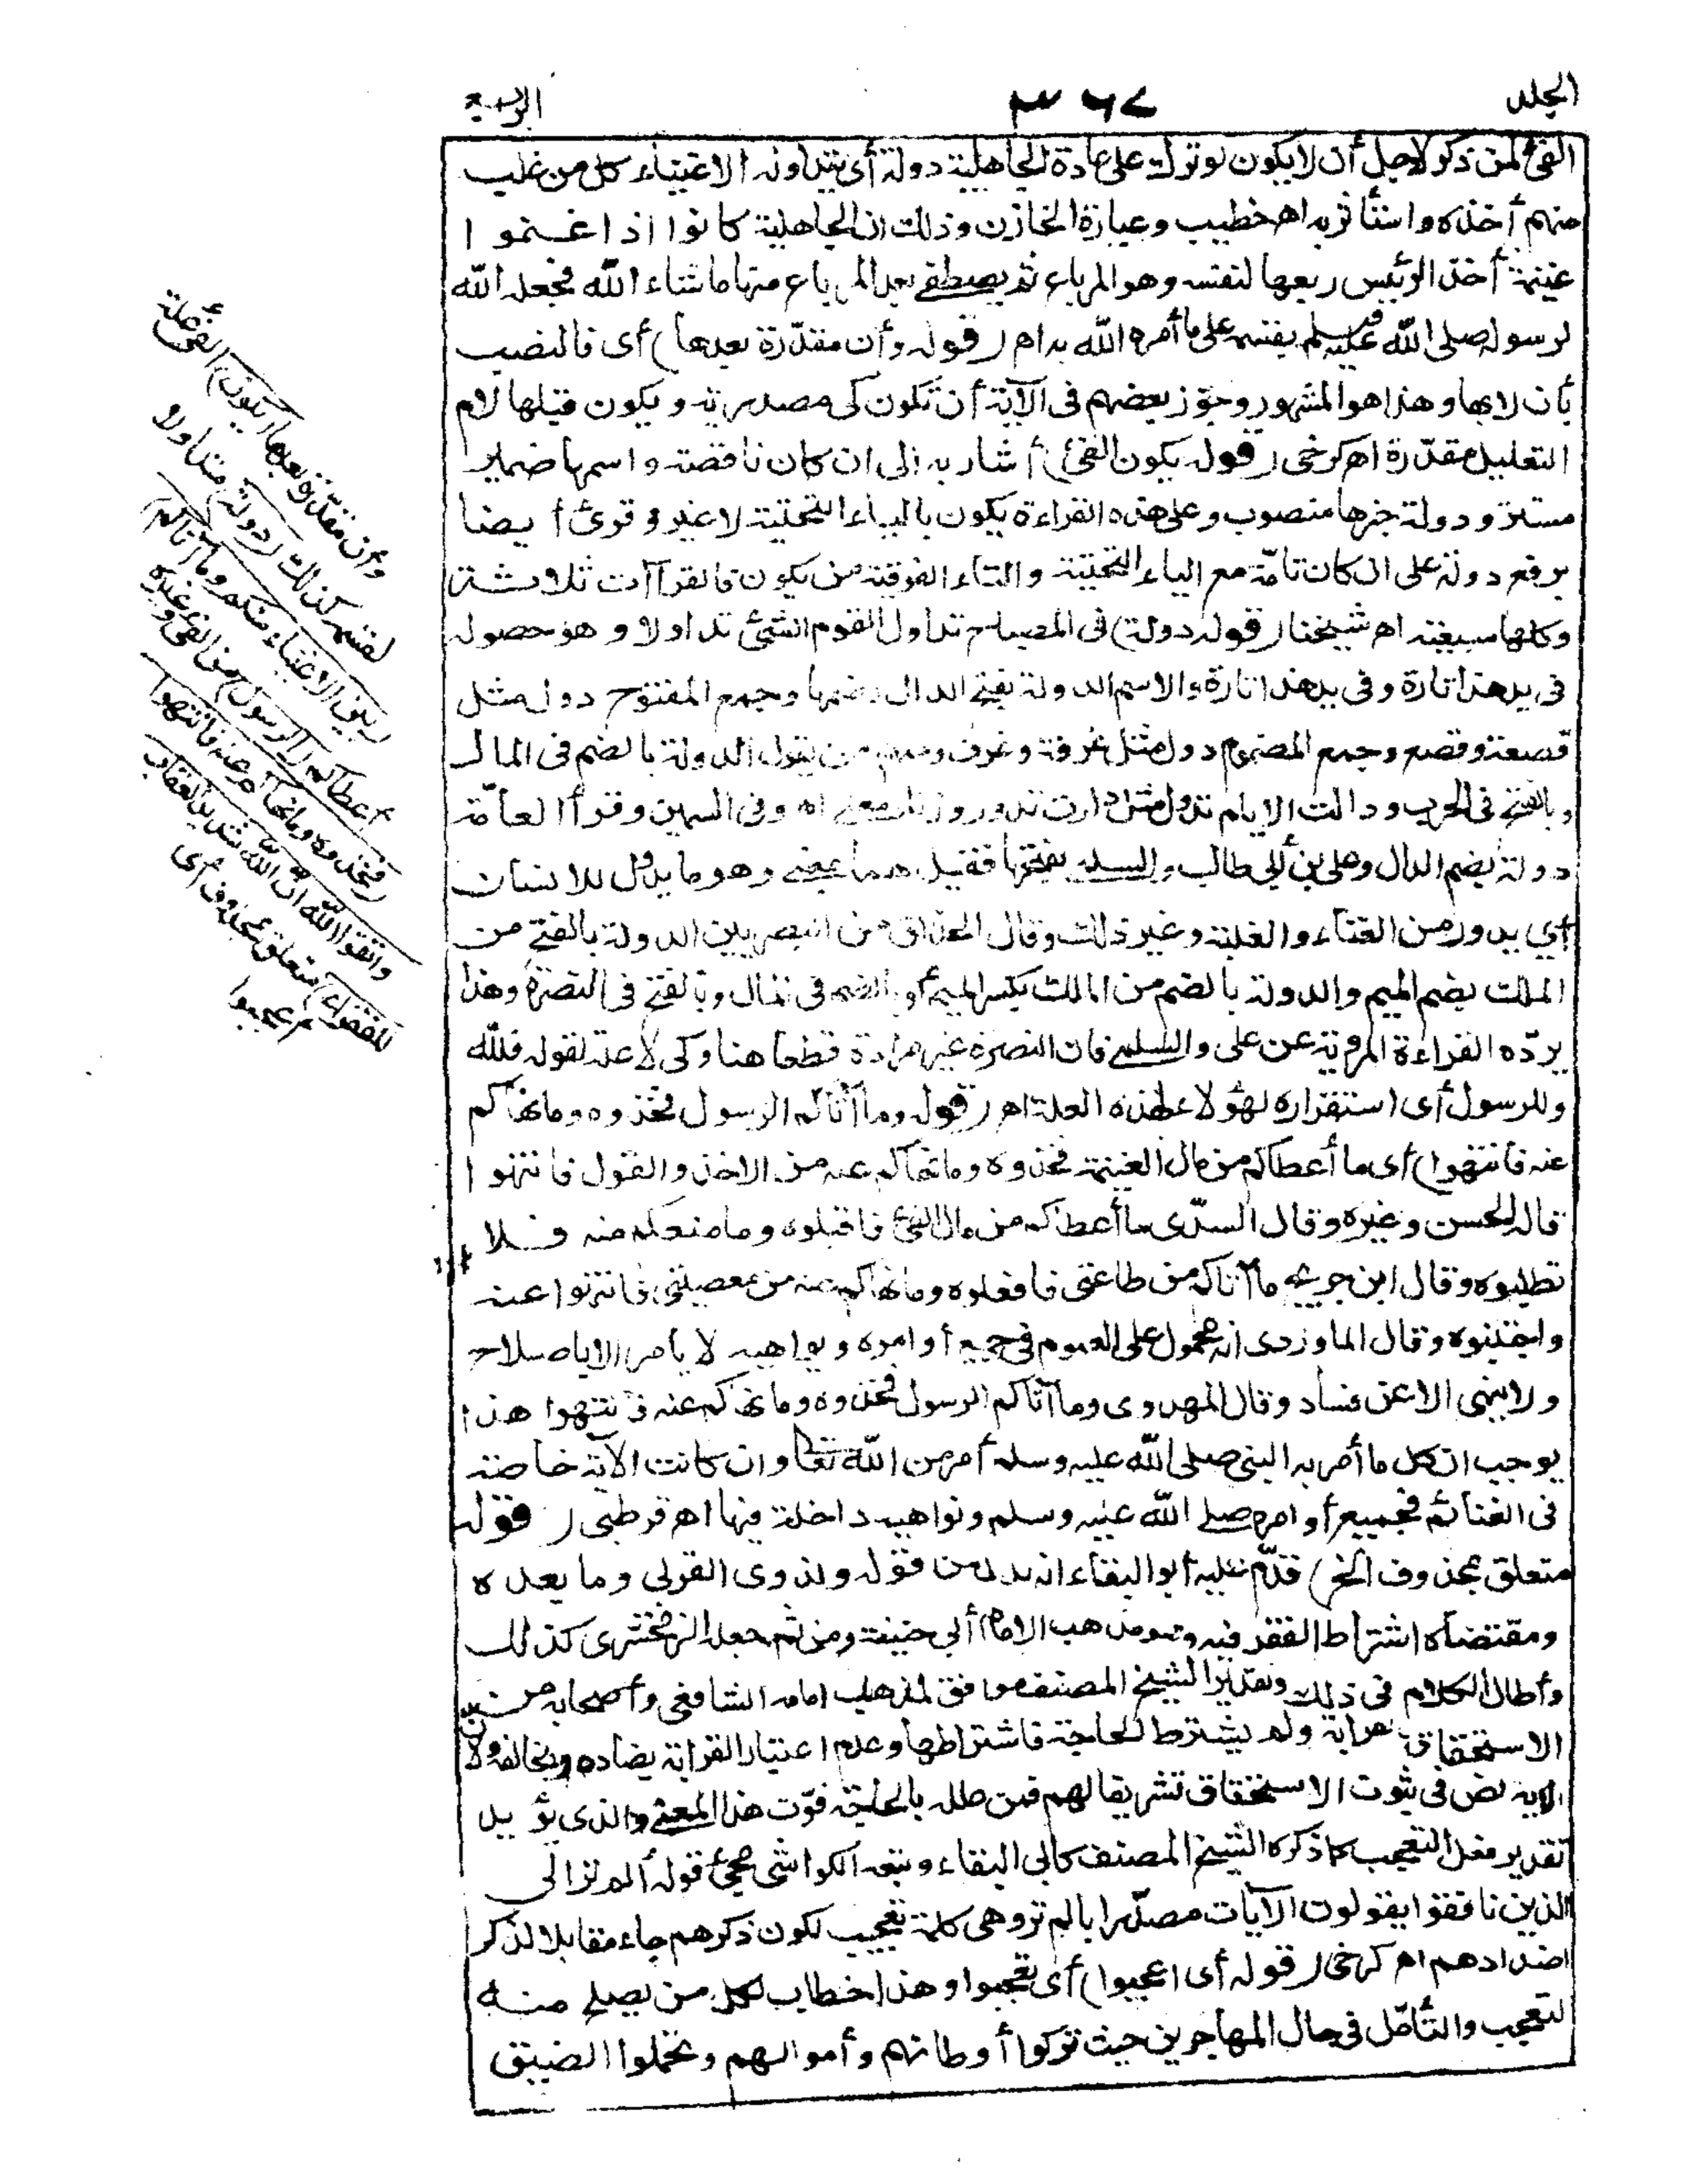 الجلد ٣٦٧ الرابع
الفئ لمن ذكر لاجل أن لا يكون لو ترك على عادة الجاهلية دولة أى يتداوله الاغنياء كل من غلب
منهم أخذه واستأثر به اهـ خطيب وعبارة الخازن وذلك ان الجاهلية كانوا اذا غنموا
غنيمة أخذ الرئيس ربعها لنفسه وهو المرباع ثم يصطفى بعد المرباع منها ما شاء الله فجعل الله
لرسوله صلى الله عليه وسلم يقسمه على ما أمره الله به اهـ (قوله وأن مقدّرة بعدها) أى فالنصب
بأن لا بها وهذا هو المشهور وجوّز بعضهم فى الآية أن تكون كى مصدرية ويكون قبلها لام
التعليل مقدّرة اهـ كرخى (قوله يكون الفئ) أشار به الى ان كان ناقصة واسمها ضمير
مستتر ودولة خبرها منصوب وعلى هذه القراءة يكون بالياء التحتية لا غير وقرئ أيضا
برفع دولة على ان كان تامّة مع الياء التحتية والتاء الفوقية من يكون فالقراآت ثلاثة
وكلها سبعية اهـ شيخنا (قوله دولة) فى المصباح تداول القوم الشئ تداولا وهو حصوله
فى يد هذا تارة وفى يد هذا تارة والاسم الدولة بفتح الدال وضمها وجمع المفتوح دول مثل
قصعة وقصع وجمع المضموم دول مثل غرفة وغرف ومنهم من يقول الدولة بالضم فى المال
وبالفتح فى الحرب ودالت الايام تدول مثل دارت تدور وزنا ومعنى اهـ وفى السمين وقرأ العامّة
دولة بضم الدال وعلى بن أبى طالب والسلمى بفتحها فقيل هما بمعنى وهو ما يدول للانسان
أى يدور من الغناء والغلبة وغير ذلك وقال الحذاق من البصريين الدولة بالفتح من
الملك بضم الميم والدولة بالضم من الملك بكسر الميم أو بالضم فى المال وبالفتح فى النصرة وهذا
يردّه القراءة المروية عن على والسلمى فان النصرة غير مرادة قطعا هنا وكى لا علة لقوله فلله
وللرسول أى استقراره لهؤلاء لهذه العلة اهـ (قوله وما آتاكم الرسول فخذوه وما نهاكم
عنه فانتهوا) أى ما أعطاكم من مال الغنيمة فخذوه وما نهاكم عنه من الاخذ والقول فانتهوا
قاله الحسن وغيره وقال السدّى ما أعطاكم من مال الفئ فاقبلوه وما منعكم منه فلا
تطلبوه وقال ابن جريج ما آتاكم من طاعتى فافعلوه وما نهاكم عنه من معصيتى فانتهوا عنه
واجتنبوه وقال الماوردى انه محمول على العموم فى جميع أوامره ونواهيه لا يأمر الا باصلاح
ولا ينهى الا عن فساد وقال المهدوى وما آتاكم الرسول فخذوه وما نهاكم عنه فانتهوا هذا
يوجب ان كل ما أمر به النبى صلى الله عليه وسلم أمر من الله تعالى وان كانت الآية خاصة
فى الغنائم فجميع أوامره صلى الله عليه وسلم ونواهيه داخلة فيها اهـ قرطبى (قوله
متعلق بمحذوف الخ) قدّم عليه أبو البقاء انه بدل من قوله ولذوى القربى وما بعده
ومقتضاه اشتراط الفقر فيه وهو مذهب الامام أبى حنيفة ومن ثم جعله الزمخشرى كذلك
وأطال الكلام فى ذلك وتقدير الشيخ المصنف موافق لمذهب امامه الشافعى وأصحابه من
الاستحقاق بالقرابة ولم يشترط الحاجة فاشتراطها وعدم اعتبار القرابة يضاده ويخالفه ولان
الآية نص فى ثبوت الاستحقاق تشريفا لهم فمن علله بالحاجة فوّت هذا المعنى والذى يؤيد
تقدير فعل التعجب كما ذكره الشيخ المصنف كأبى البقاء وتبعه الكواشى مجئ قوله ألم تر الى
الذين نافقوا يقولون الآيات مصدّرا بألم تر وهى كلمة تعجيب لكون ذكرهم جاء مقابلا لذكر
اضدادهم اهـ كرخى (قوله أى اعجبوا) أى تعجبوا وهذا خطاب لكل من يصلح منه
التعجب والتأمّل فى حال المهاجرين حيث تركوا أوطانهم وأموالهم وتحملوا الضيق
وأن مقدّرة بعدها (يكون) الفئ علة
لقسمه كذلك (دولة) متداولا
(بين الاغنياء منكم وما آتاكم)
أعطاكم (الرسول) من الفئ وغيره
(فخذوه وما نهاكم عنه فانتهوا
واتقوا الله ان الله شديد العقاب
للفقراء) متعلق بمحذوف أى
اعجبوا